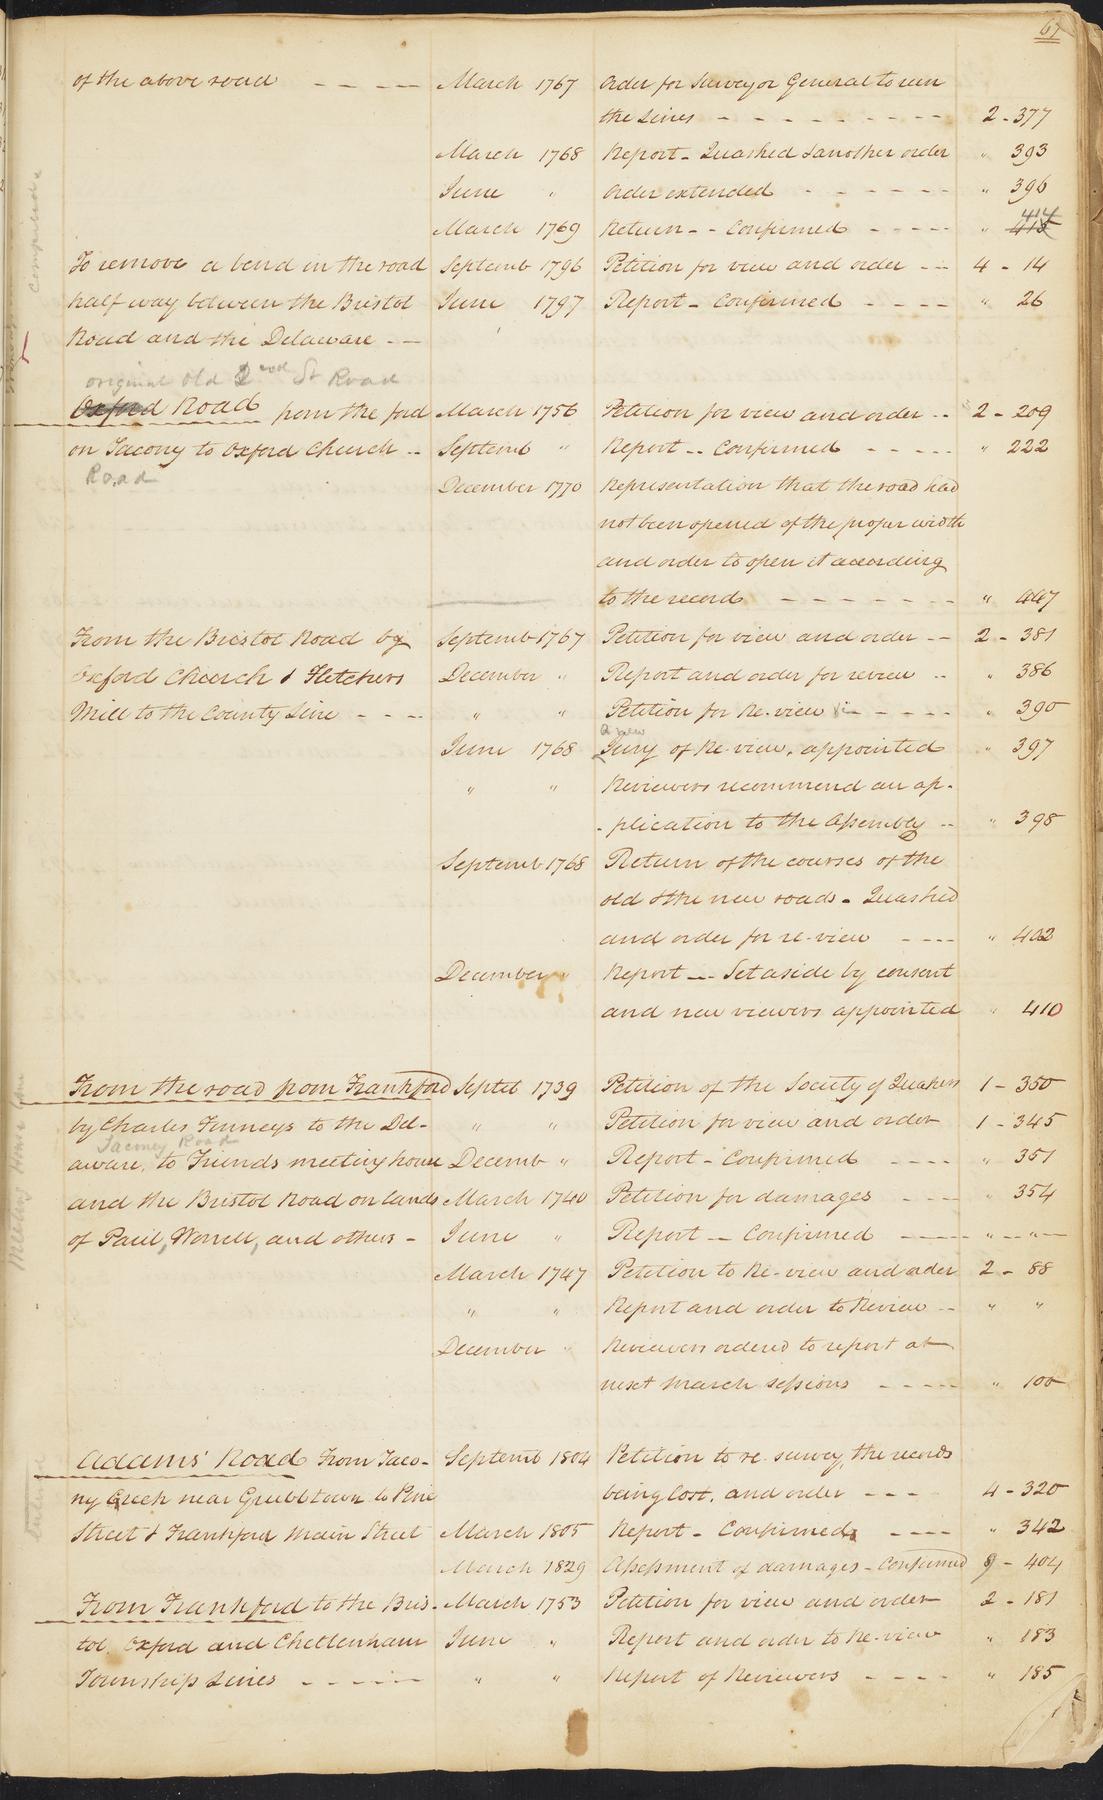 67
of the above road - - - - March 1767 Order for Surveyor General to run
the lines - - - - - - - - - 2 - 377
March 1768 Report - Quashed & another order " 393
June " Order extended - - - - - - " 396
March 1769 Return - - Confirmed - - - - - " 415 414
To remove a bend in the road Septemb 1796 Petition for view and order - - - 4 - 14
half way between the Bristol June 1797 Report - Confirmed - - - - " 26
Road and the Delaware - -
original old 2nd St Road
Oxford Road from the ford March 1756 Petition for view and order - - 2 - 209
on Tacony to Oxford Church - - Septemb " Report - - Confirmed - - - - - " 222
Road
December 1770 Representation that the road had
not been opened of the proper width
and order to open it according
to the record - - - - - - - " 447
From the Bristol Road by Septemb 1767 Petition for view and order - - 2 - 381
Oxford Church & Fletchers December " Report and order for review - - " 386
Mill to the County Line - - - - " " Petition for Re-view - - - - - " 390
a new
June 1768 Jury of Re-view, appointed " 397
" " Reviewers recommend an ap-
-plication to the Assembly - - " 398
Septemb 1768 Return of the courses of the
old & the new roads - Quashed
and order for re-view - - - - " 402
December " Report - - Set aside by consent
and new viewers appointed " 410
From the road from Frankford Septeb 1739 Petition of the Society of Quakers 1 - 350
by Charles Finneys to the Del- " " Petition for view and order 1 - 345
Tacony Road
aware, to Friends meeting house Decemb " Report - Confirmed - - - - " 351
and the Bristol Road on lands March 1740 Petition for damages - - - - " 354
of Paul, Worrell, and others - June " Report - - Confirmed - - - - " - - " -
March 1747 Petition to Re-view and order 2 - 88
" " Report and order to Review - - " "
December " Reviewers ordered to report at
next March sessions - - - - - " 100
Adams' Road From Taco- Septemb 1804 Petition to re survey, the records
ny Creek near Grubbtown to Pine being lost, and order - - - 4 - 320
Street & Frankford Main Street March 1805 Report - Confirmed - - - - " 342
March 1829 Assessment of damages - Confirmed 8 - 404
From Frankford to the Bris- March 1753 Petition for view and order 2 - 181
tol Oxford and Cheltenham June " Report and order to Re-view " 183
Township Lines - - - - - " " Report of Reviewers - - - - " 185